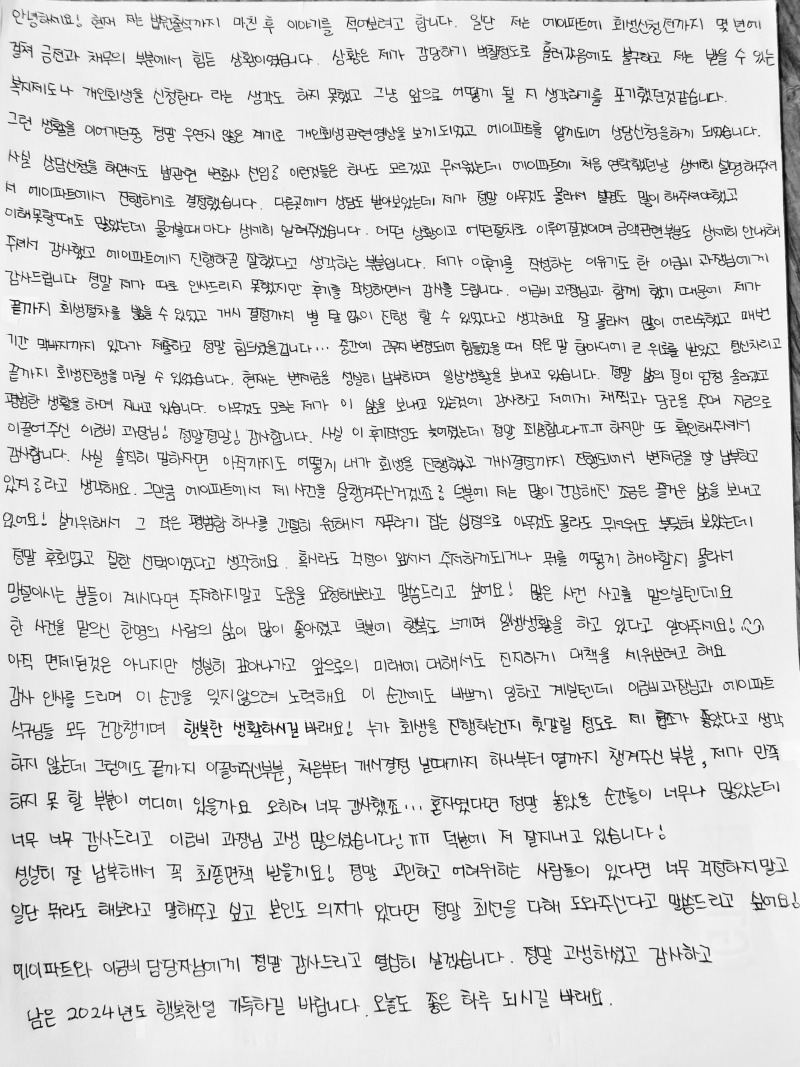 안녕하세요! 현재 저는 법원출석까지 마친 후 이야기를 적어보려고 합니다. 일단 저는 에이파트에 회생신청전까지 몇 년에
걸쳐 금전과 채무의 부분에서 힘든 상황이였습니다. 상황은 제가 감당하기 벅찰정도로 흘러갔음에도 불구하고 저는 받을 수 있는
복지제도나 개인회생을 신청한다 라는 생각도 하지 못했고 그냥 앞으로 어떻게 될 지 생각하기를 포기했던것같습니다.
그런 생활을 이어가던중 정말 우연치 않은 계기로 개인회생관련영상을 보게되었고 에이파트를 알게되어 상담신청을하게 되었습니다.
사실 상담신청을 하면서도 법관련 변호사 선임? 이런것들은 하나도 모르겠고 무서웠는데 에이파트에 처음 연락했던날 상세히 설명해주셔
서 에이파트에서 진행하기로 결정했습니다. 다른곳에서 상담도 받아보았는데 제가 정말 아무것도 몰라서 설명도 많이 해주셔야했고
이해못할때도 많았는데 물어볼때마다 상세히 알려주셨습니다. 어떤 상황이고 어떤절차로 이루어질것이며 금액관련부분도 상세히 안내해
주셔서 감사했고 에이파트에서 진행하길 잘했다고 생각하는 부분입니다. 제가 이후기를 작성하는 이유기도 한 이금비 과장님에게
감사드립니다 정말 제가 따로 인사드리지 못했지만 후기를 작성하면서 감사를 드립니다. 이금비 과장님과 함께 했기 때문에 제가
끝까지 회생절차를 밟을 수 있었고 개시 결정까지 별 탈 없이 진행 할 수 있었다고 생각해요 잘 몰라서 많이 어리숙했고 매번
기간 막바지까지 있다가 제출하고 정말 힘드셨을겁니다... 중간에 근무지 변경되어 힘들었을 때 작은 말 한마디에 큰 위로를 받았고 정신차리고
끝까지 회생진행을 마칠 수 있었습니다. 현재는 변제금을 성실히 납부하며 일상생활을 보내고 있습니다. 정말 삶의 질이 엄청 올라갔고
평범한 생활을 하며 지내고 있습니다. 아무것도 모르는 제가 이 삶을 보내고 있는것에 감사하고 저에게 채찍과 당근을 주며 지금으로
이끌어 주신 이금비 과장님! 정말정말! 감사합니다. 사실 이 후기작성도 늦어졌는데 정말 죄송합니다ㅠㅠ 하지만 또 확인해주셔서
감사합니다. 사실 솔직히 말하자면 아직까지도 어떻게 내가 회생을 진행했고 개시결정까지 진행되어서 변제금을 잘 납부하고
있지?라고 생각해요. 그만큼 에이파트에서 제 사건을 잘챙겨주신거겠죠? 덕분에 저는 많이 건강해진 조금은 즐거운 삶을 보내고
있어요! 살기위해서 그 작은 평범함 하나를 간절히 원해서 지푸라기 잡는 심정으로 아무것도 몰라도 무서워도 부딪혀 보았는데
정말 후회없고 잘한 선택이였다고 생각해요. 혹시라도 걱정이 앞서서 주저하게되거나 뭐를 어떻게 해야할지 몰라서
망설이시는 분들이 계시다면 주저하지말고 도움을 요청해보라고 말씀드리고 싶어요! 많은 사건 사고를 맡으실텐데요
한 사건을 맡으신 한명의 사람의 삶이 많이 좋아졌고 덕분에 행복도 느끼며 일상생활을 하고 있다고 알아주세요!
아직 면제된것은 아니지만 성실히 갚아나가고 앞으로의 미래에 대해서도 진지하게 대책을 세워보려고 해요
감사 인사를 드리며 이 순간을 잊지않으려 노력해요 이 순간에도 바쁘게 일하고 계실텐데 이금비과장님과 에이파트
식구님들 모두 건강챙기며 행복한 생활하시길 바래요! 누가 회생을 진행하는건지 헷갈릴 정도로 제 협조가 좋았다고 생각
하지 않는데 그럼에도 끝까지 이끌어주신부분, 처음부터 개시결정 날때까지 하나부터 열까지 챙겨주신 부분, 제가 만족
하지 못 할 부분이 어디에 있을까요 오히려 너무 감사했죠... 혼자였다면 정말 놓았을 순간들이 너무나 많았는데
너무 너무 감사드리고 이금비 과장님 고생 많으셨습니다!ㅠㅠ 덕분에 저 잘지내고 있습니다!
성실히 잘 납부해서 꼭 최종면책 받을게요! 정말 고민하고 어려워하는 사람들이 있다면 너무 걱정하지말고
일단 뭐라도 해보라고 말해주고 싶고 본인도 의지가 있다면 정말 최선을 다해 도와주신다고 말씀드리고 싶어요!
에이파트와 이금비 담당자님에게 정말 감사드리고 열심히 살겠습니다. 정말 고생하셨고 감사하고
남은 2024년도 행복한일 가득하길 바랍니다. 오늘도 좋은 하루 되시길 바래요.